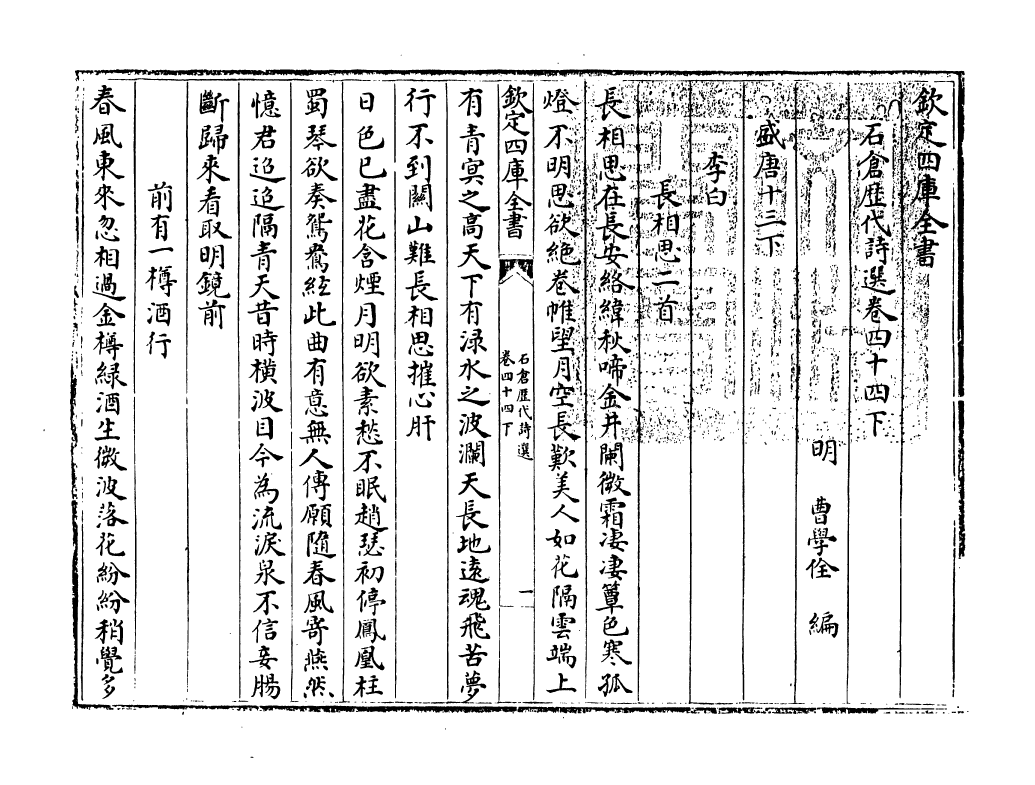 欽定四庫全書
石倉歴代詩選卷四十四下
明 曹學佺 編
盛唐十三下
李白
長相思二首
長相思在長安絡緯秋啼金井闌微霜凄凄簟色寒孤
燈不明思欲絶卷帷望月空長歎美人如花隔雲端上
欽定四庫全書
石倉歴代詩選
卷四十四下
一
有青冥之高天下有渌水之波瀾天長地逺魂飛苦夢
行不到關山難長相思摧心肝
日色已盡花含煙月明欲素愁不眠趙瑟初停鳳凰柱
蜀琴欲奏鴛鴦絃此曲有意無人傳願隨春風寄燕然
憶君迢迢隔青天昔時横波目今為流淚泉不信妾腸
斷歸來看取明鏡前
前有一樽酒行
春風東來忽相過金樽緑酒生微波落花紛紛稍覺多